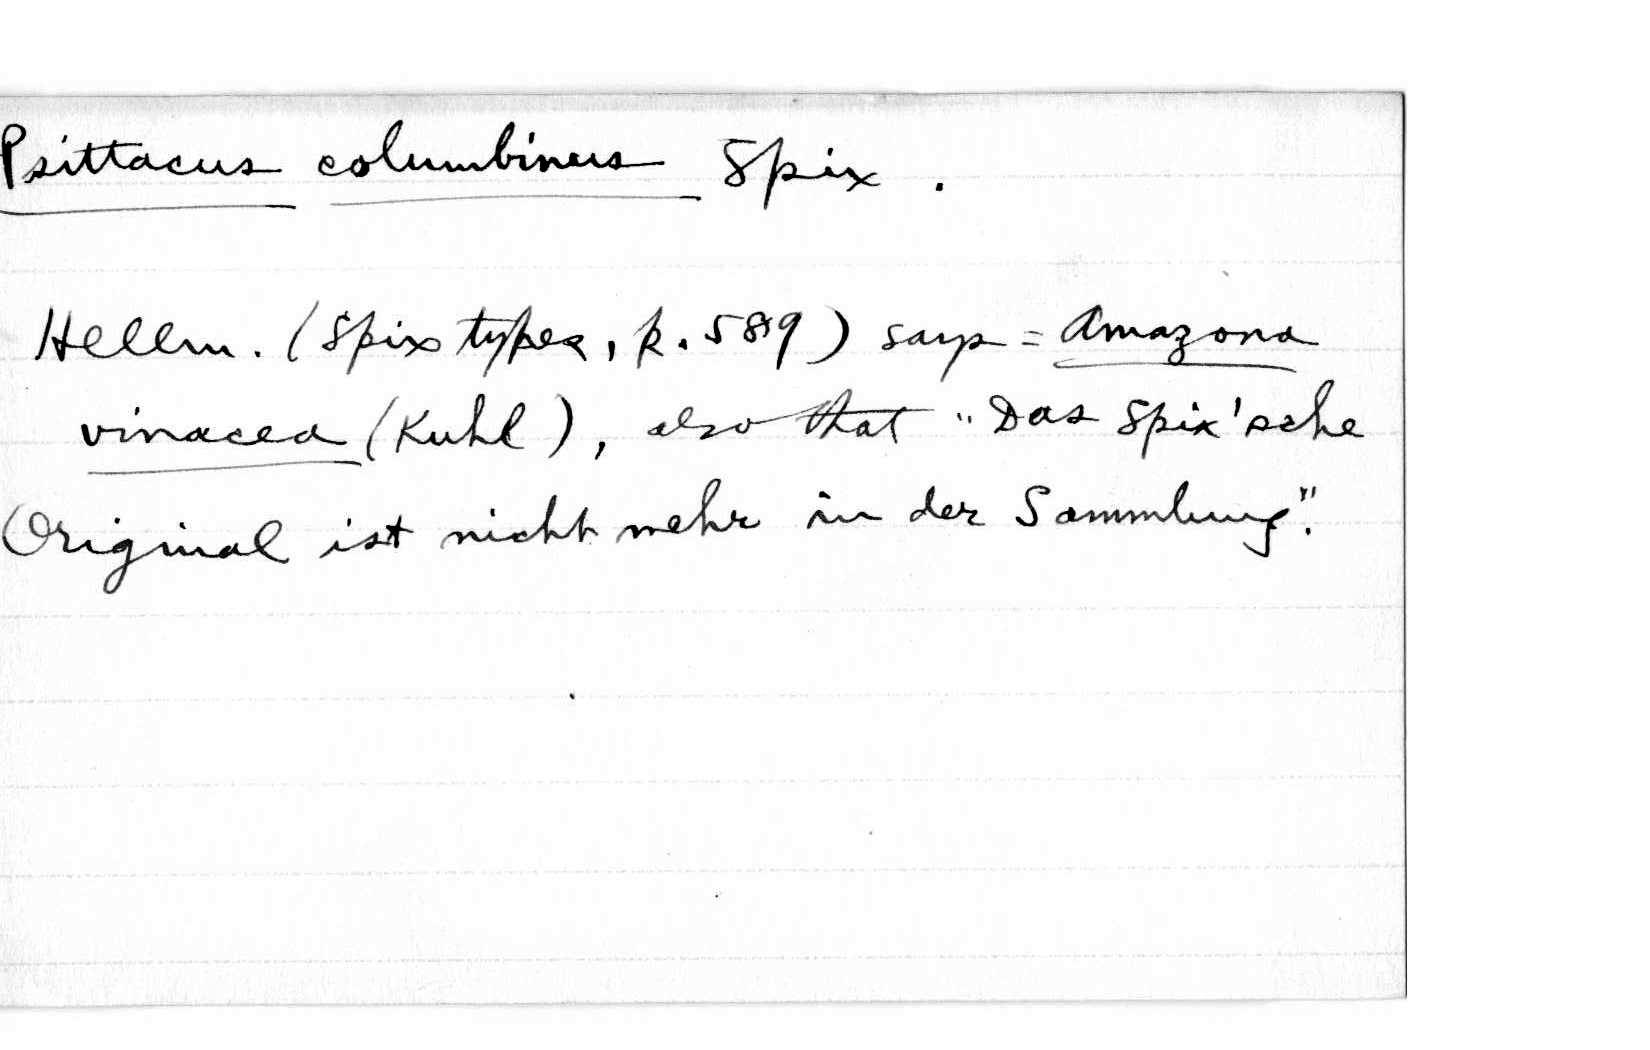 Psittacus columbinus Spix.
Hellm. (Spix types, p. 589) says = Amazona
vinacea (Kuhl), also that "Das Spix'sche
Original ist nicht mehr in der Sammlung".